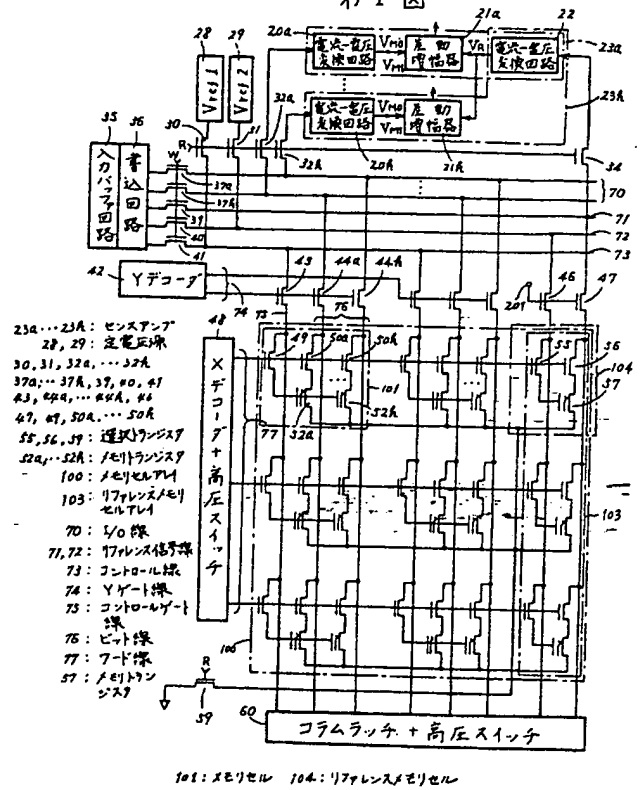 第1図
20a
21a
22
23a
28
29
電流-電圧
変換回路
VM0
VM1
差動
増幅器
VR
電流-電圧
変換回路
Vref 1
Vref 2
32a
電流-電圧
変換回路
VM0
VM1
差動
増幅器
23h
35
36
30
31
R
32h
20h
21h
34
入力バッファ回路
書込回路
W
37a
37h
39
40
41
70
71
72
73
42
Yデコーダ
74
43
44a
44h
46
47
201
75
76
48
Xデコーダ+高圧スイッチ
49
50a
50h
101
52a
52h
77
55
56
57
104
103
100
23a…23h: センスアンプ
28, 29: 定電圧源
30, 31, 32a, … 32h
37a, … 37h, 39, 40, 41
43, 44a, … 44h, 46
47, 49, 50a, … 50h
55, 56, 59: 選択トランジスタ
52a, … 52h: メモリトランジスタ
100: メモリセルアレイ
103: リファレンスメモリ
セルアレイ
70: I/O線
71, 72: リファレンス信号線
73: コントロール線
74: Yゲート線
75: コントロールゲート
線
76: ビット線
77: ワード線
57: メモリトラン
ジスタ
R
59
60
コラムラッチ+高圧スイッチ
101: メモリセル 104: リファレンスメモリセル